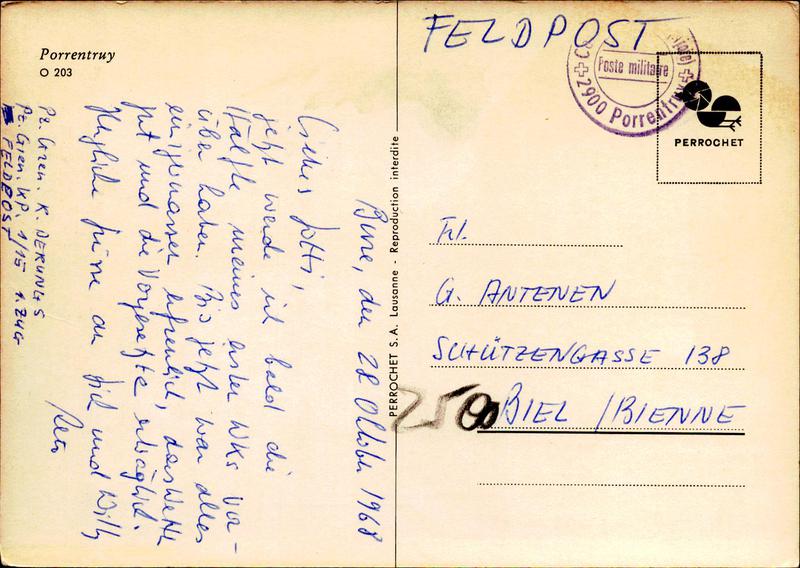 Porrentruy
O 203
Bure, den 28 Oktober 1968
Liebes Gotti,
jetzt werde ich bald die
Hälfte meines ersten WKs vor-
über haben. Bis jetzt war alles
einigermassen erfreulich, das Wetter
gut und die Vorgesetzte erträglich.
Herzliche Grüsse an dich und Willy
Reto
Pz. Gren. K. NERUNGS
Pz. Gren. KP. 1/15 1. ZUG
FELDPOST
PERROCHET S.A. Lausanne - Reproduction interdite
FELDPOST
Poste militaire
2900 Porrentruy
PERROCHET
Frl.
G. ANTENEN
SCHÜTZENGASSE 138
2500 BIEL / BIENNE